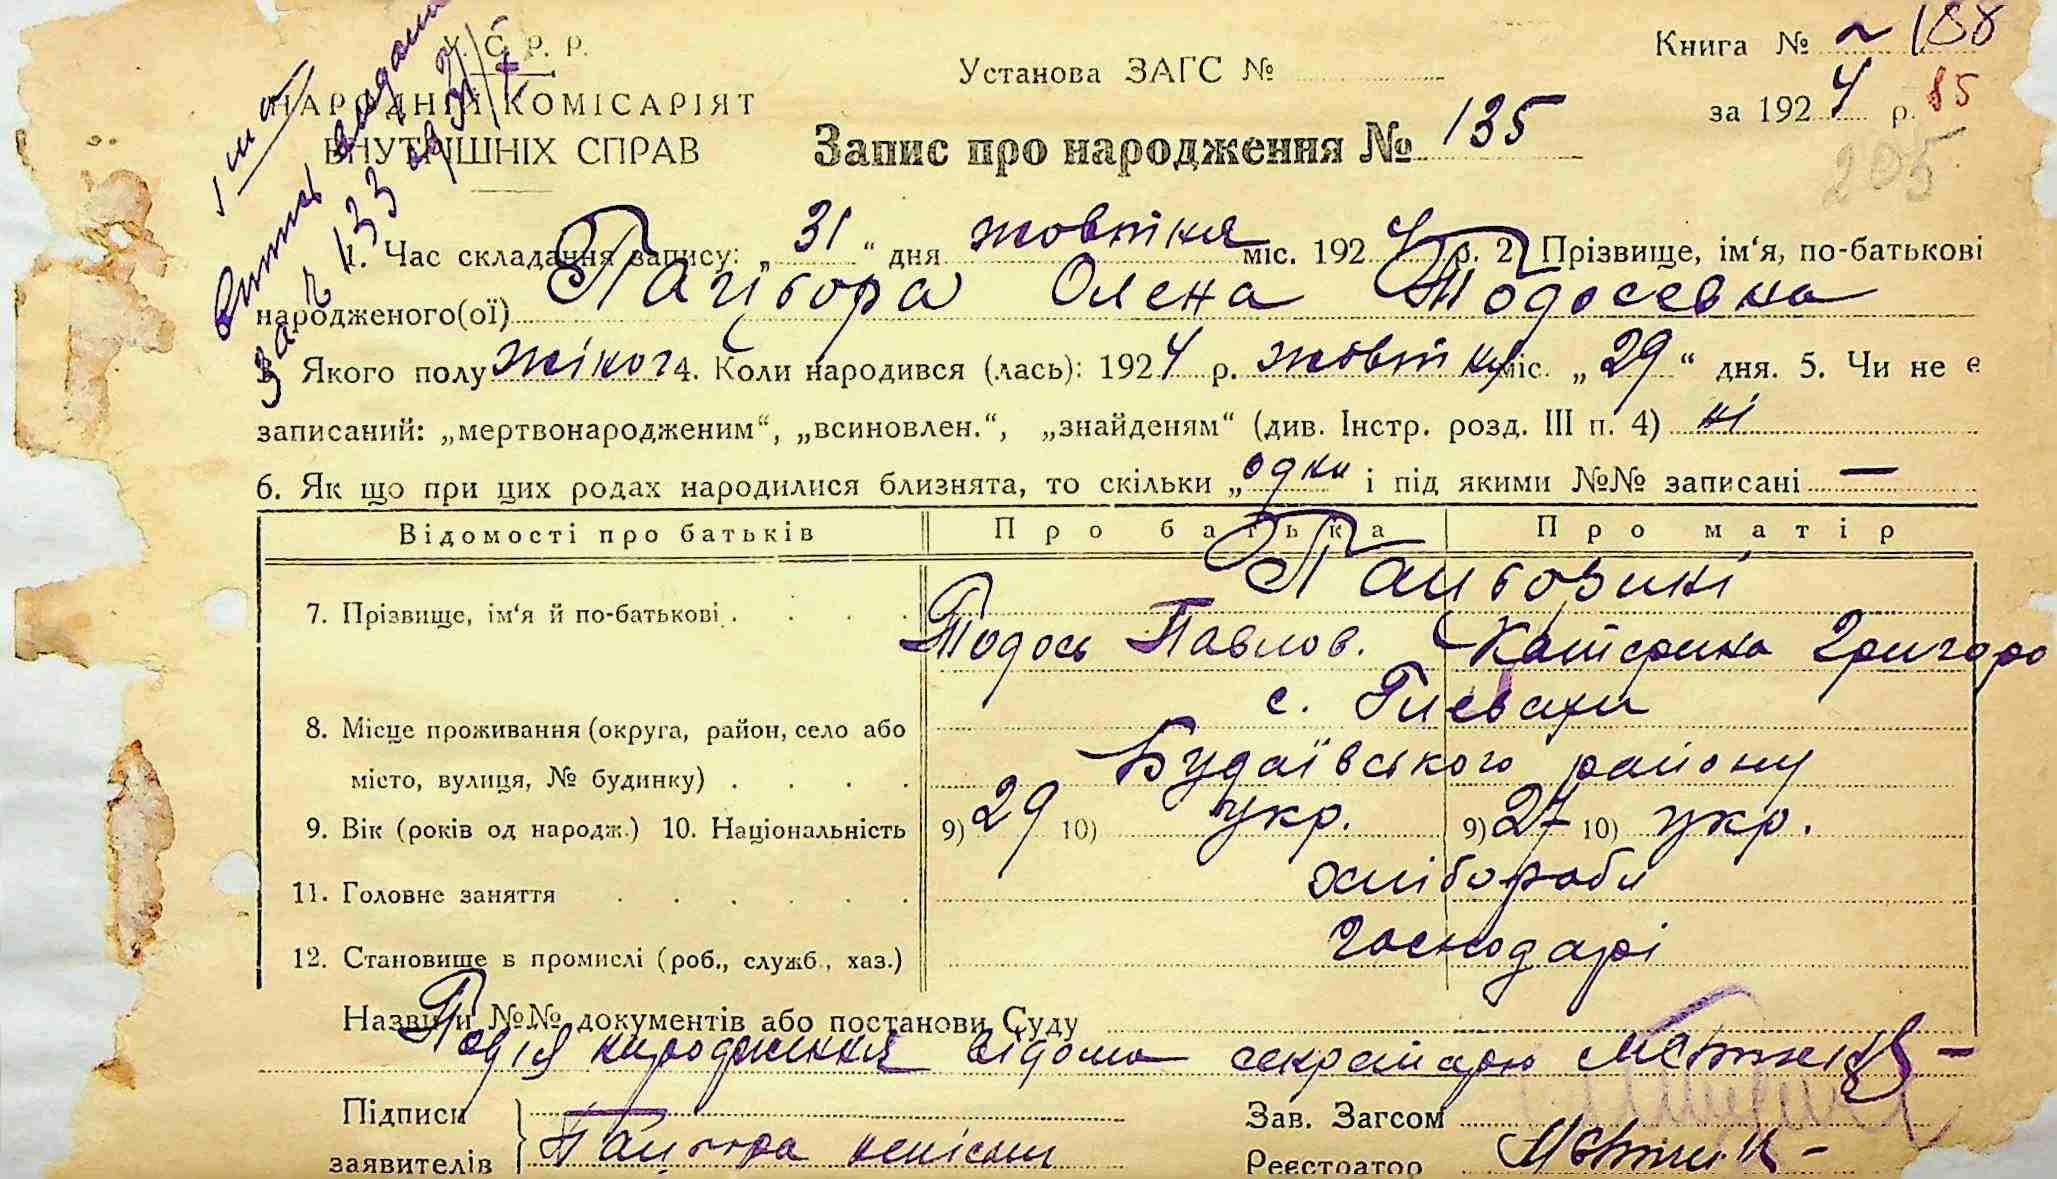 У. С. Р. Р.
НАРОДНІЙ КОМІСАРІЯТ
ВНУТРІШНІХ СПРАВ
Установа ЗАГС №
Книга № 188
за 1924 р. 85
205
Запис про народження № 135
1. Час складання запису: „31“ дня жовтня міс. 1924 р. 2. Прізвище, ім‘я, по-батькові
народженого(ої) Пацюора Олена Тодосевна
Якого полу жіноч 4. Коли народився (лась): 1924 р. жовтня міс. „29“ дня. 5. Чи не є
записаний: „мертвонародженим“, „всиновлен.“, „знайденям“ (див. Інстр. розд. III п. 4) ні
6. Як що при цих родах народилися близнята, то скільки „одна і під якими №№ записані —
Відомості про батьків Про батька Про матір
7. Прізвище, ім‘я й по-батькові
Тодось Павлов. Катерина Григоро
с. Глевахи
8. Місце проживання (округа, район, село або
місто, вулиця, № будинку) Будаївського району
9. Вік (років од народж.) 10. Національність 9) 29 10) укр. 9) 27 10) укр.
11. Головне заняття хлібороби
12. Становище в промислі (роб., служб., хаз.) господарі
Назви й №№ документів або постанови Суду
Подія народження відома секретарю
Підписи
заявителів неписьм
Зав. Загсом
Реєстратор